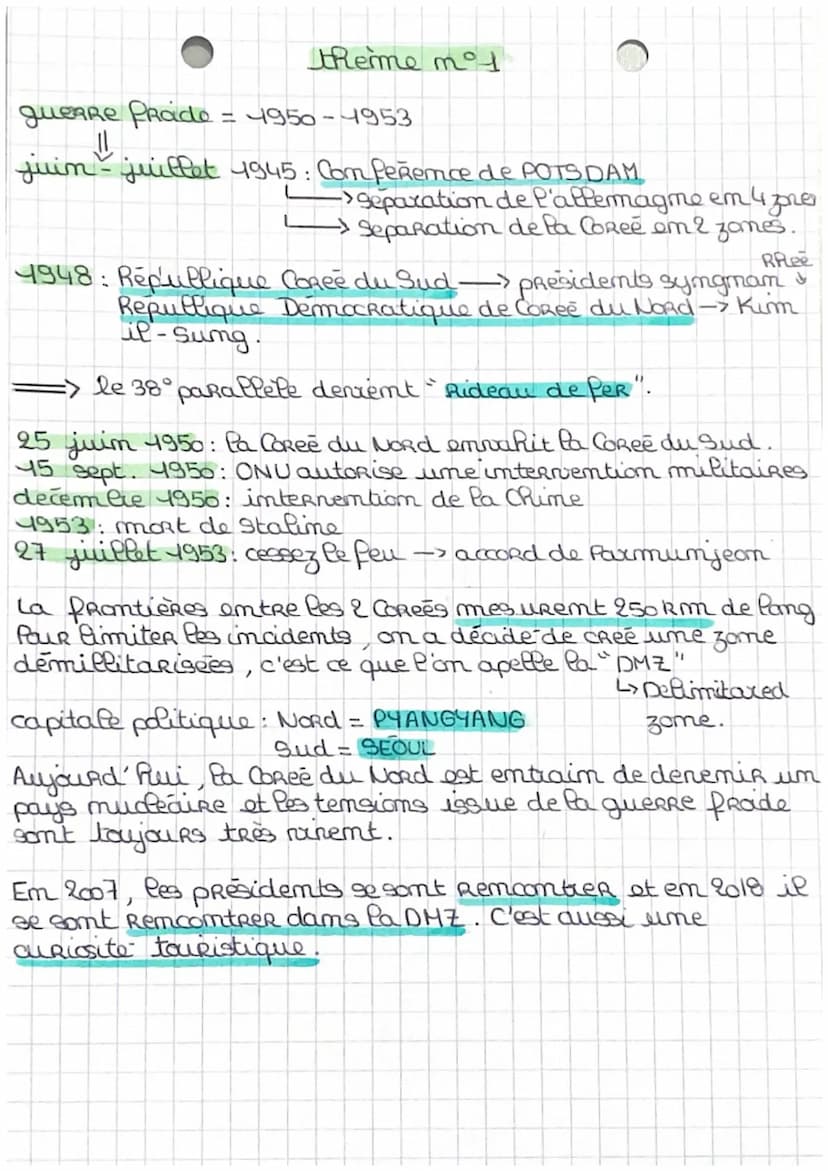 thème n°1
guerre froide = 1950-1953
⇓
juin - juillet 1945 : Conférence de POTSDAM
↳ séparation de l'allemagne en 4 zones
↳ séparation de la Coreé en 2 zones.
1948 : République Coreé du Sud → présidents syngman Rhee
République Démocratique de Coreé du Nord → Kim
il-Sung.
⇒ le 38° parallèle devient "Rideau de fer".
25 juin 1950 : la Coreé du Nord envahit la Coreé du Sud.
15 sept. 1950 : ONU autorise une intervention militaires
décembre 1950 : intervention de la Chine
1953 : mort de Staline
27 juillet 1953 : cessez le feu → accord de Panmunjeon
La frontières entre les 2 Coreés mesurent 250 km de long
Pour limiter les incidents, on a décidé de creé une zone
démillitarisées, c'est ce que l'on apelle la "DMZ"
↳ Delimitared
zone.
capitale politique : Nord = PYANGYANG
Sud = SÉOUL
Aujourd'hui, la Coreé du Nord est entrain de devenir un
pays nucléaire et les tensions issue de la guerre froide
sont toujours très vivent.
En 2007, les présidents se sont rencontrer et en 2018 il
se sont rencontrer dans la DMZ. C'est aussi une
curiosité touristique.